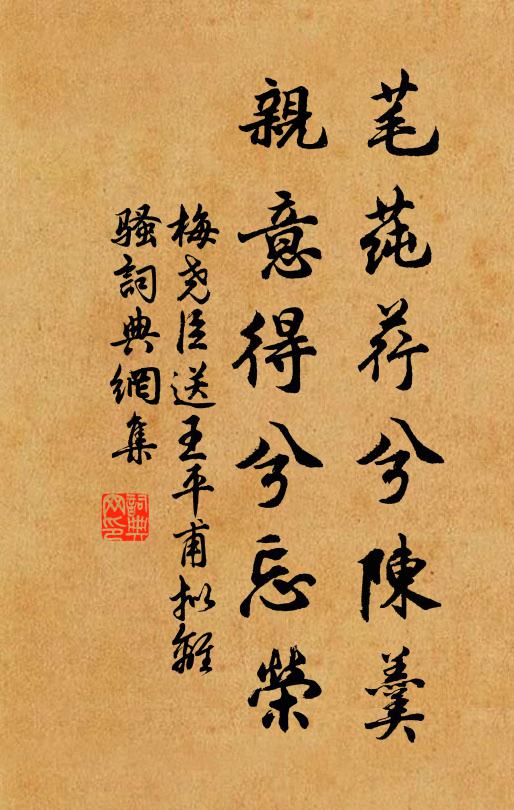 芼蒓荇兮陳羹
親意得兮忘榮
梅尧臣送王平甫拟離
騷詞典網集
詞典